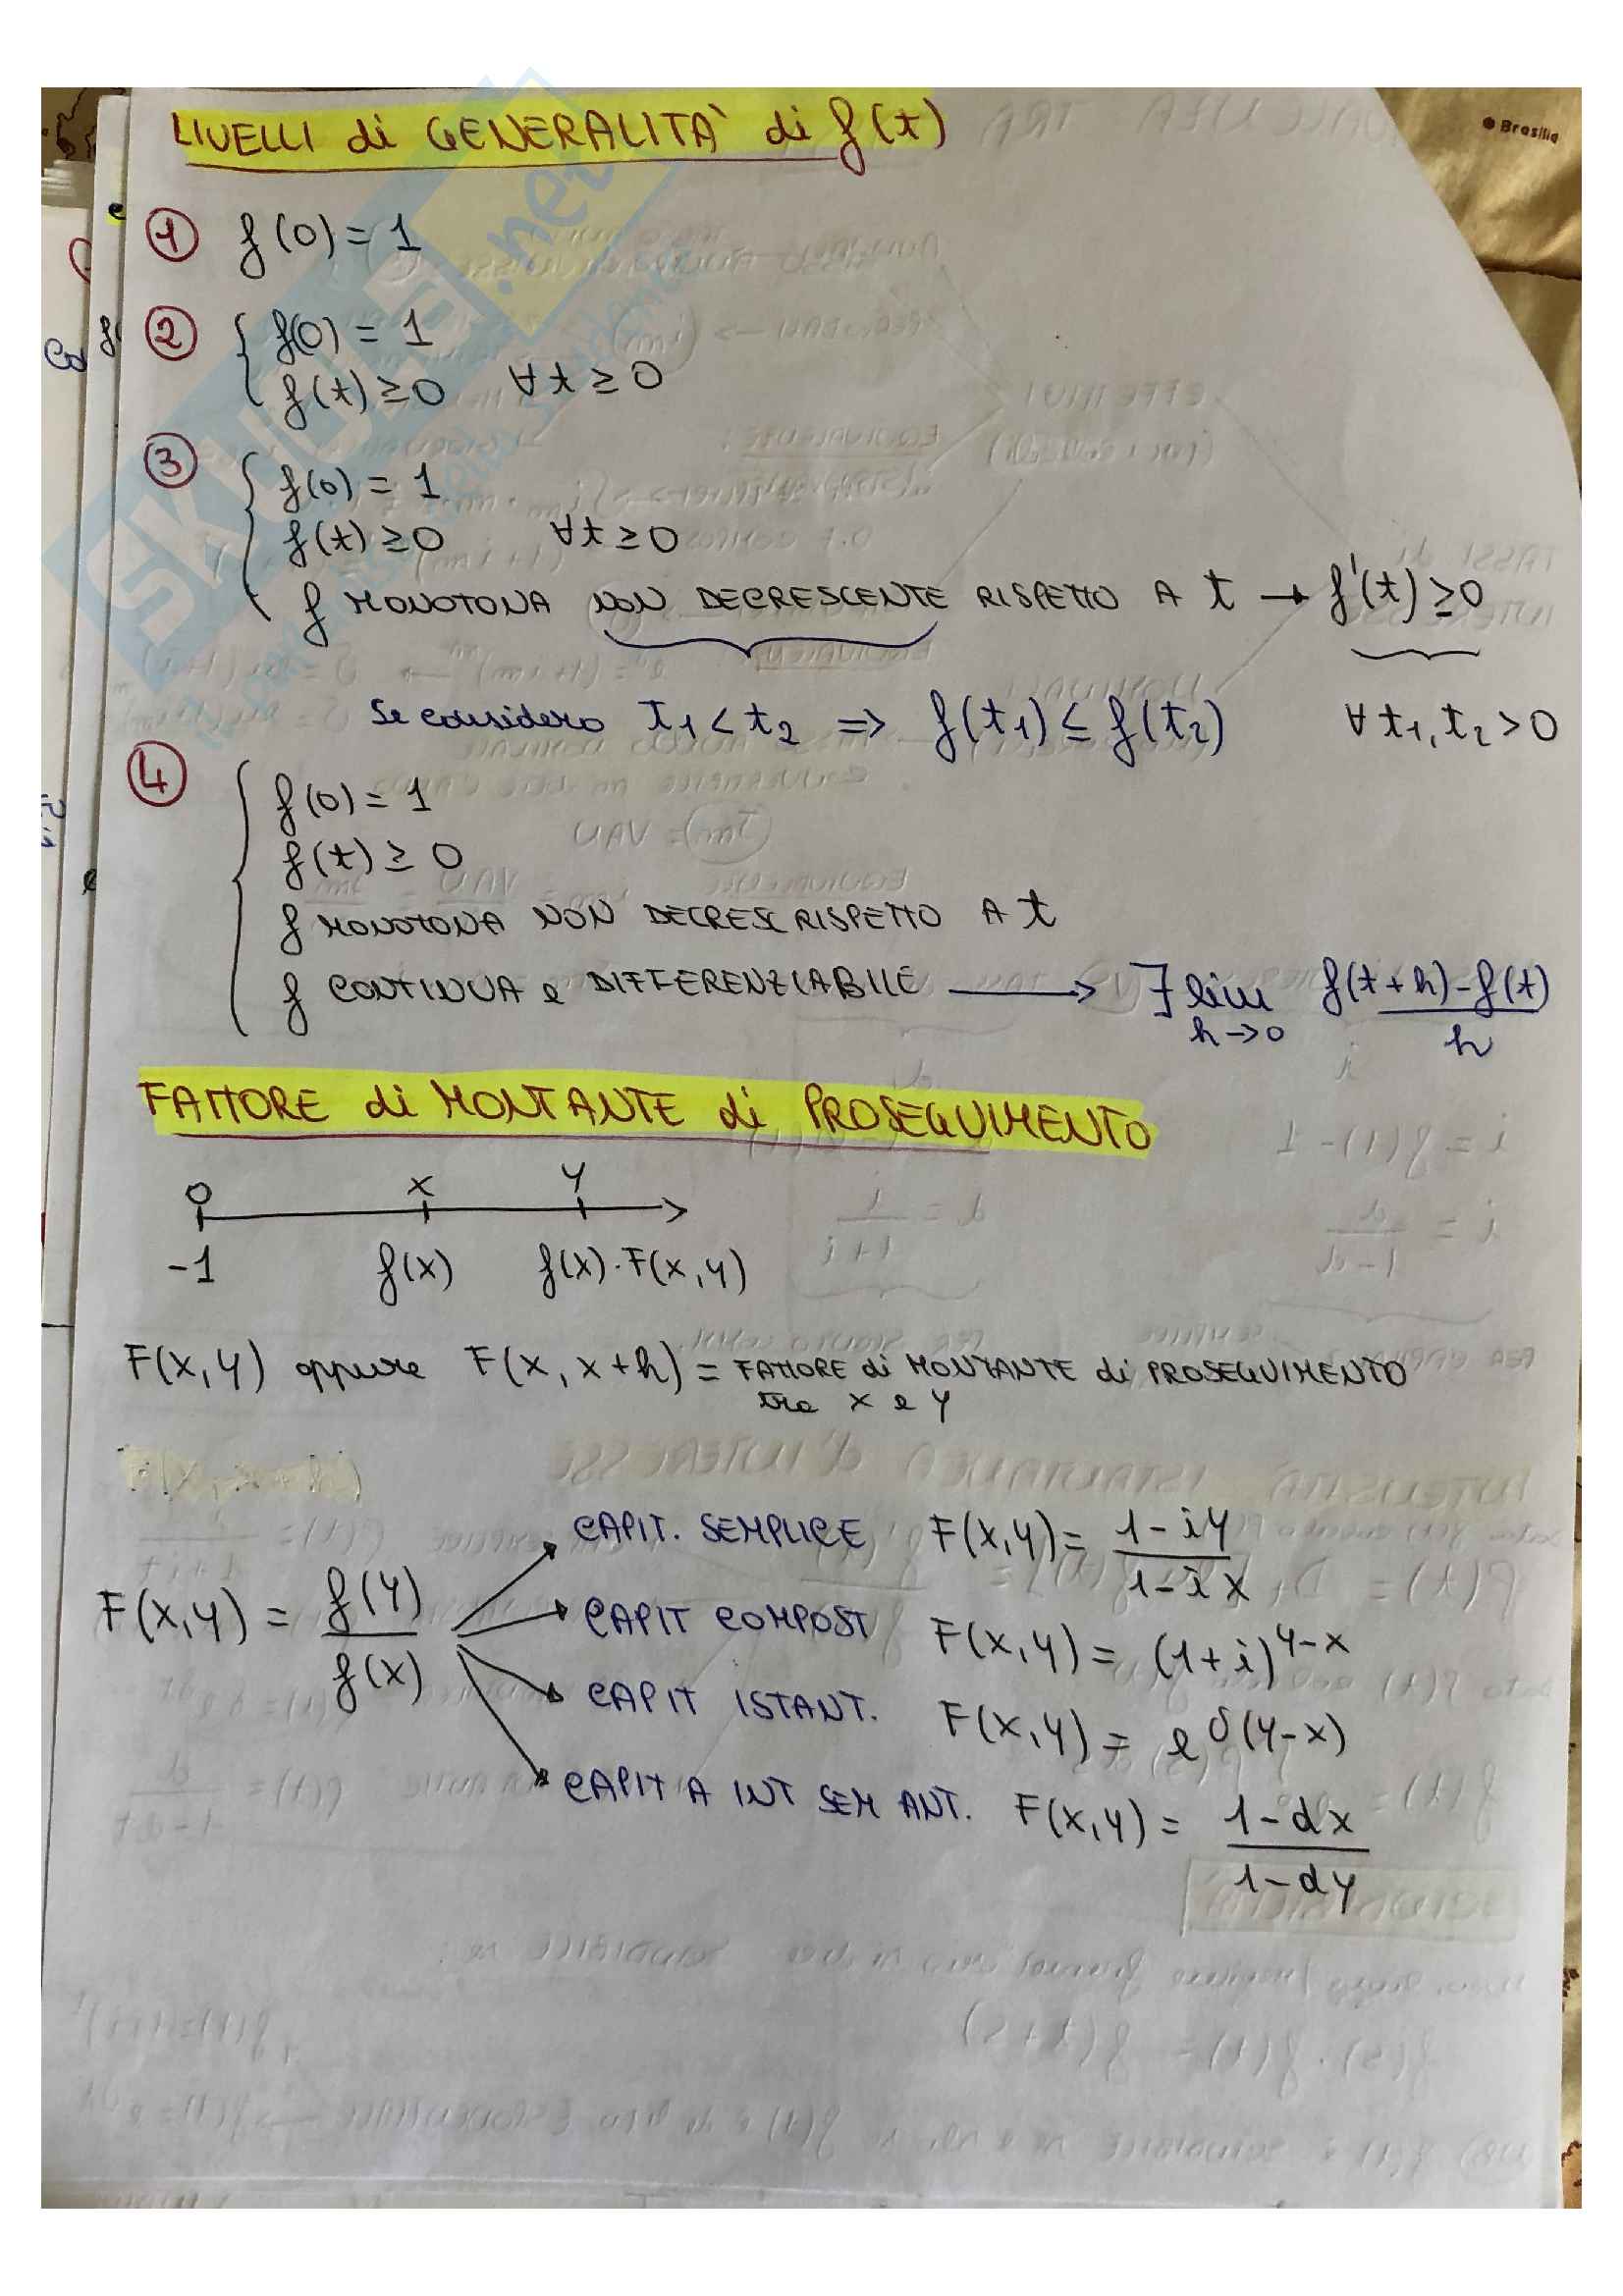 LIVELLI di GENERALITA' di f(t)
① f(0) = 1
② { f(0) = 1
f(t) ≥ 0 ∀t ≥ 0
③ { f(0) = 1
f(t) ≥ 0 ∀t ≥ 0
f MONOTONA NON DECRESCENTE RISPETTO A t → f'(t) ≥ 0
Se considero t1 < t2 => f(t1) ≤ f(t2) ∀ t1, t2 > 0
④ { f(0) = 1
f(t) ≥ 0
f MONOTONA NON DECRESC RISPETTO A t
f CONTINUA e DIFFERENZIABILE → ∃ lim h→0 f(t+h)-f(t) / h
FATTORE di MONTANTE di PROSEGUIMENTO
0 x y
-1 f(x) f(x)·F(x,y)
F(x,y) oppure F(x, x+h) = FATTORE di MONTANTE di PROSEGUIMENTO
tra x e y
CAPIT. SEMPLICE F(x,y) = 1-iy / 1-ix
F(x,y) = f(y) / f(x)
CAPIT COMPOST F(x,y) = (1+i)^y-x
CAPIT ISTANT. F(x,y) = e^δ(y-x)
CAPIT A INT SEM ANT. F(x,y) = 1-dx / 1-dy
Brasilia
SKUOLA.net